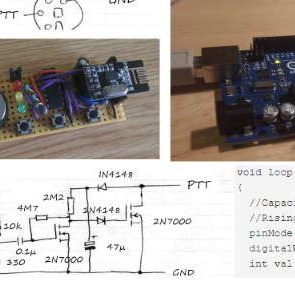 GND
PTT
1N4148
PTT
2M2
1N4148
4M7
2N7000
10k
0.1µ
47µ
330
2N7000
GND
void loop
{
//Capac
//Risin
pinMode
digitalW
int val